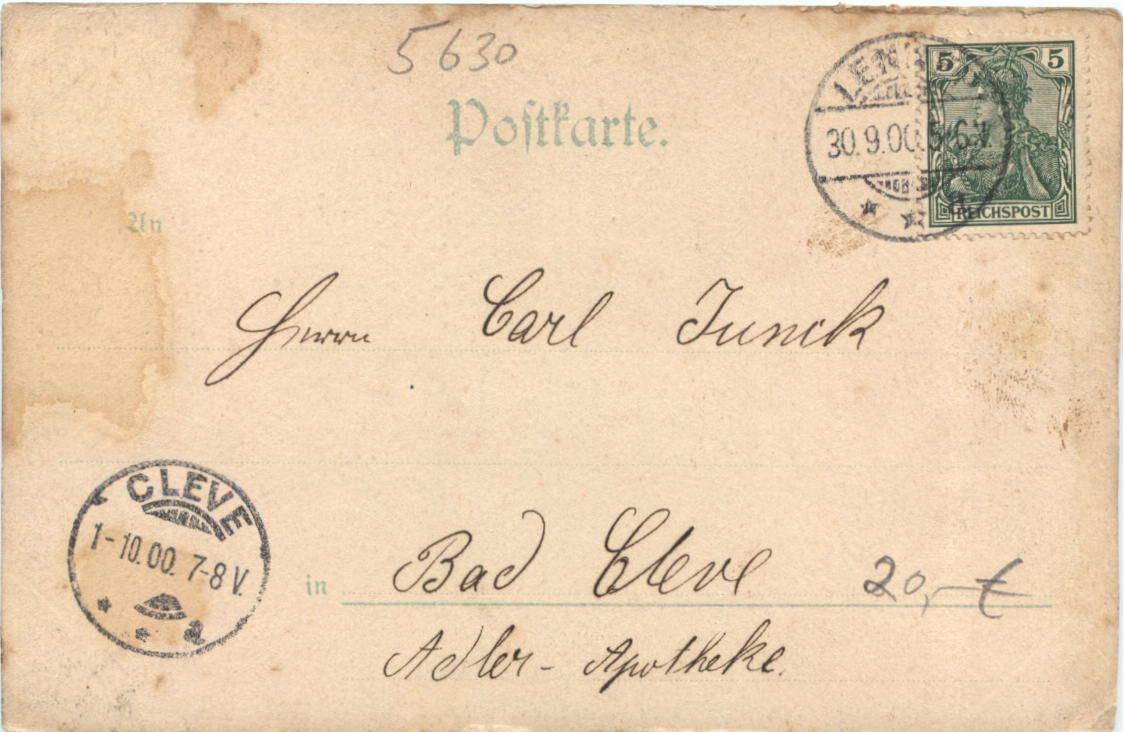 5630
Postkarte.
5 5
30.9.00. 5-6 V.
REICHSPOST
An
Herrn Carl Junck
CLEVE
1-10.00. 7-8 V.
a
in Bad Cleve
20,-€
Adler-Apotheke.